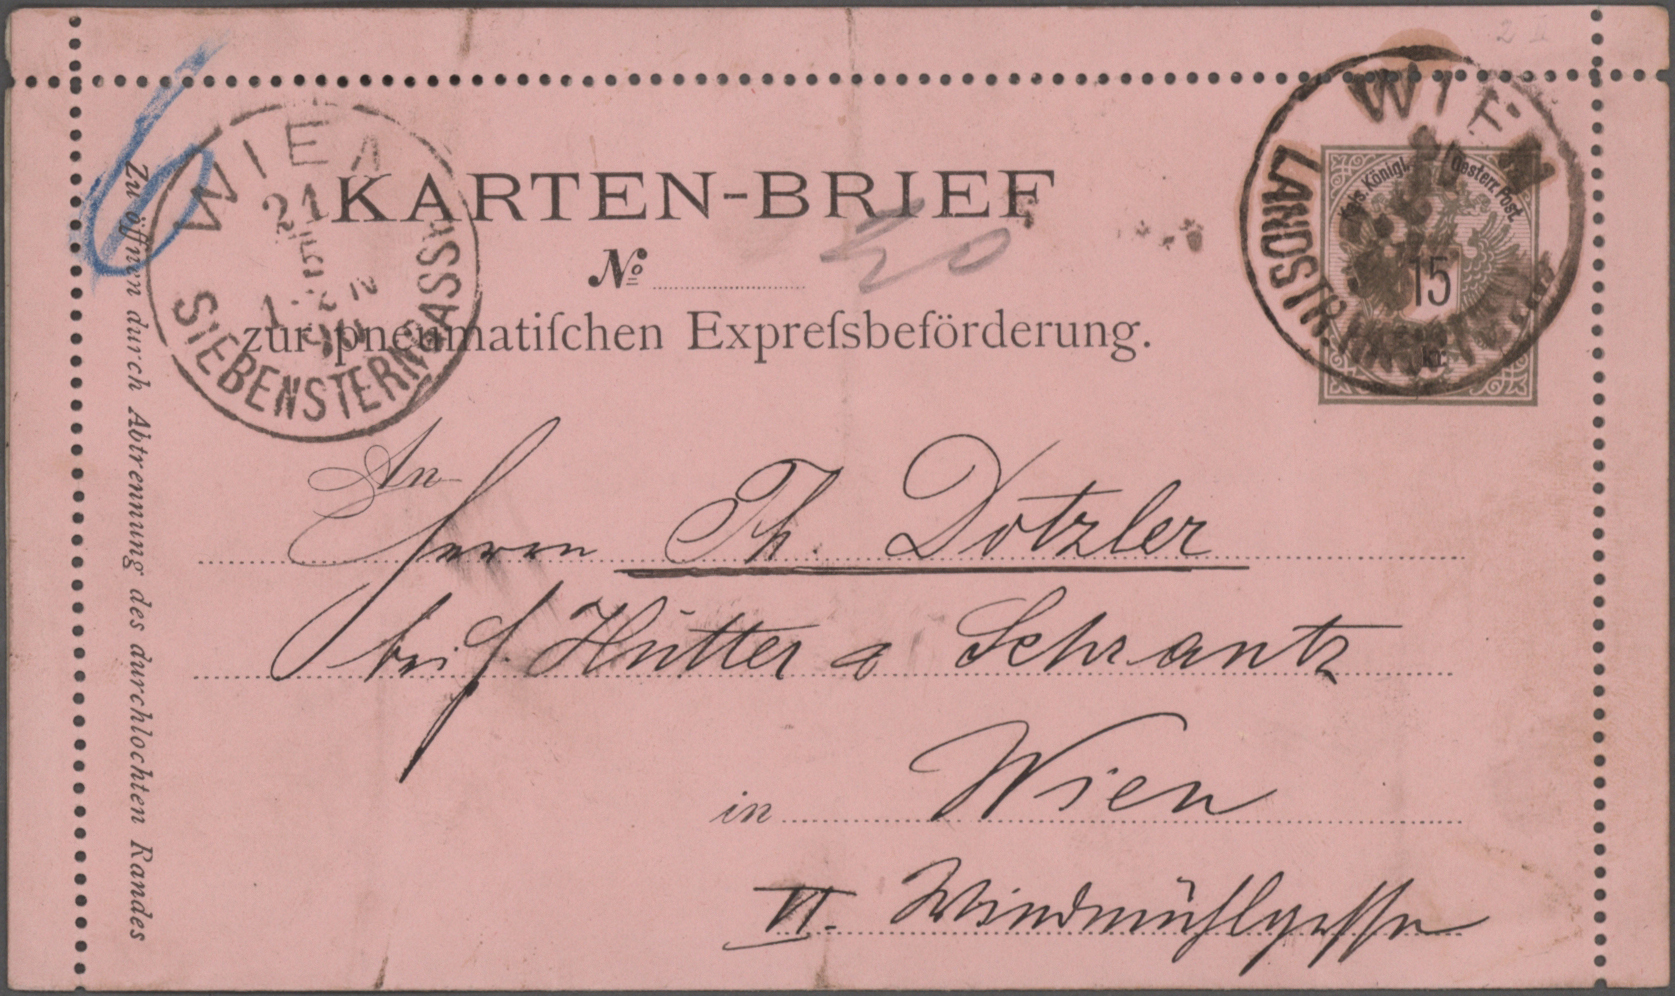 KARTEN-BRIEF
No
zur pneumatiſchen Expreſsbeförderung.
WIEN
21
SIEBENSTERNGASSE
WIEN
LANDSTR. HAUPTSTR
Kais. Königl. Oesterr. Post.
15
kr.
20
An
Herrn Th. Dotzler
bei H. Hutter & Schrantz
in Wien
VI. Windmühlgasse
Zu öffnen durch Abtrennung des durchlochten Randes